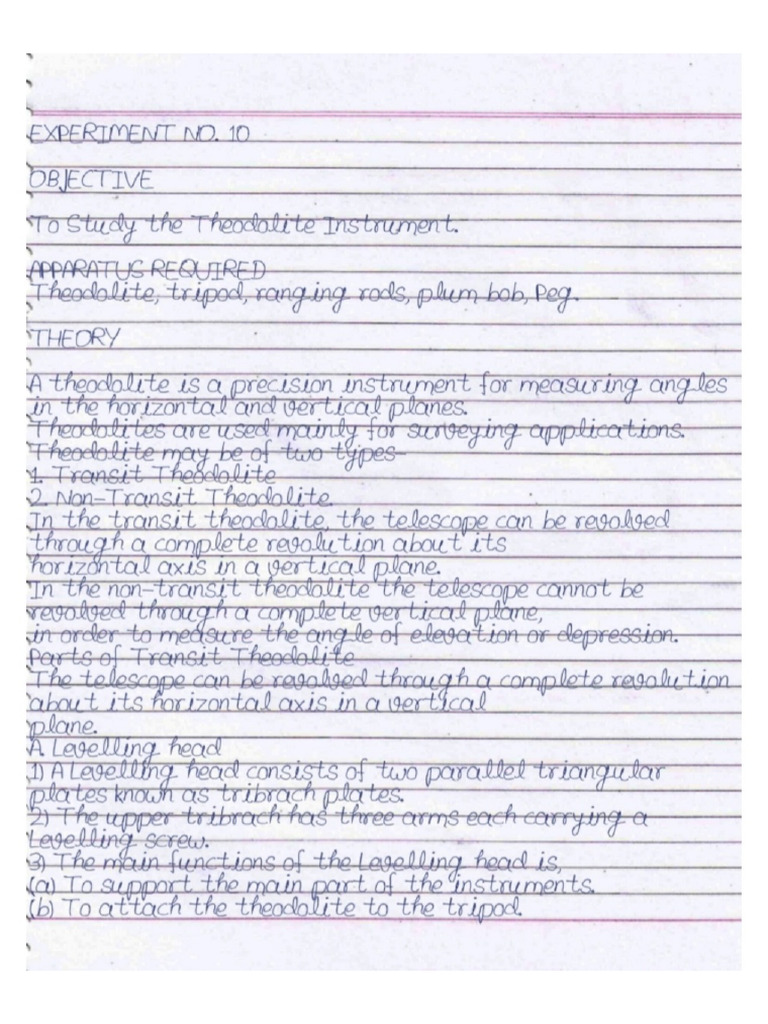 EXPERIMENT NO. 10
OBJECTIVE
To Study the Theodolite Instrument.
APPARATUS REQUIRED
Theodolite, tripod, ranging rods, plum bob, Peg.
THEORY
A theodolite is a precision instrument for measuring angles
in the horizontal and vertical planes.
Theodolites are used mainly for surveying applications.
Theodolite may be of two types-
1. Transit Theodolite
2. Non-Transit Theodolite.
In the transit theodolite, the telescope can be revolved
through a complete revolution about its
horizontal axis in a vertical plane.
In the non-transit theodolite the telescope cannot be
revolved through a complete vertical plane,
in order to measure the angle of elevation or depression.
Parts of Transit Theodolite
The telescope can be revolved through a complete revolution
about its horizontal axis in a vertical
plane.
A Levelling head
1) A Levelling head consists of two parallel triangular
plates known as tribrach plates.
2) The upper tribrach has three arms each carrying a
Levelling screw.
3) The main functions of the Levelling head is,
(a) To support the main part of the instruments.
(b) To attach the theodolite to the tripod.